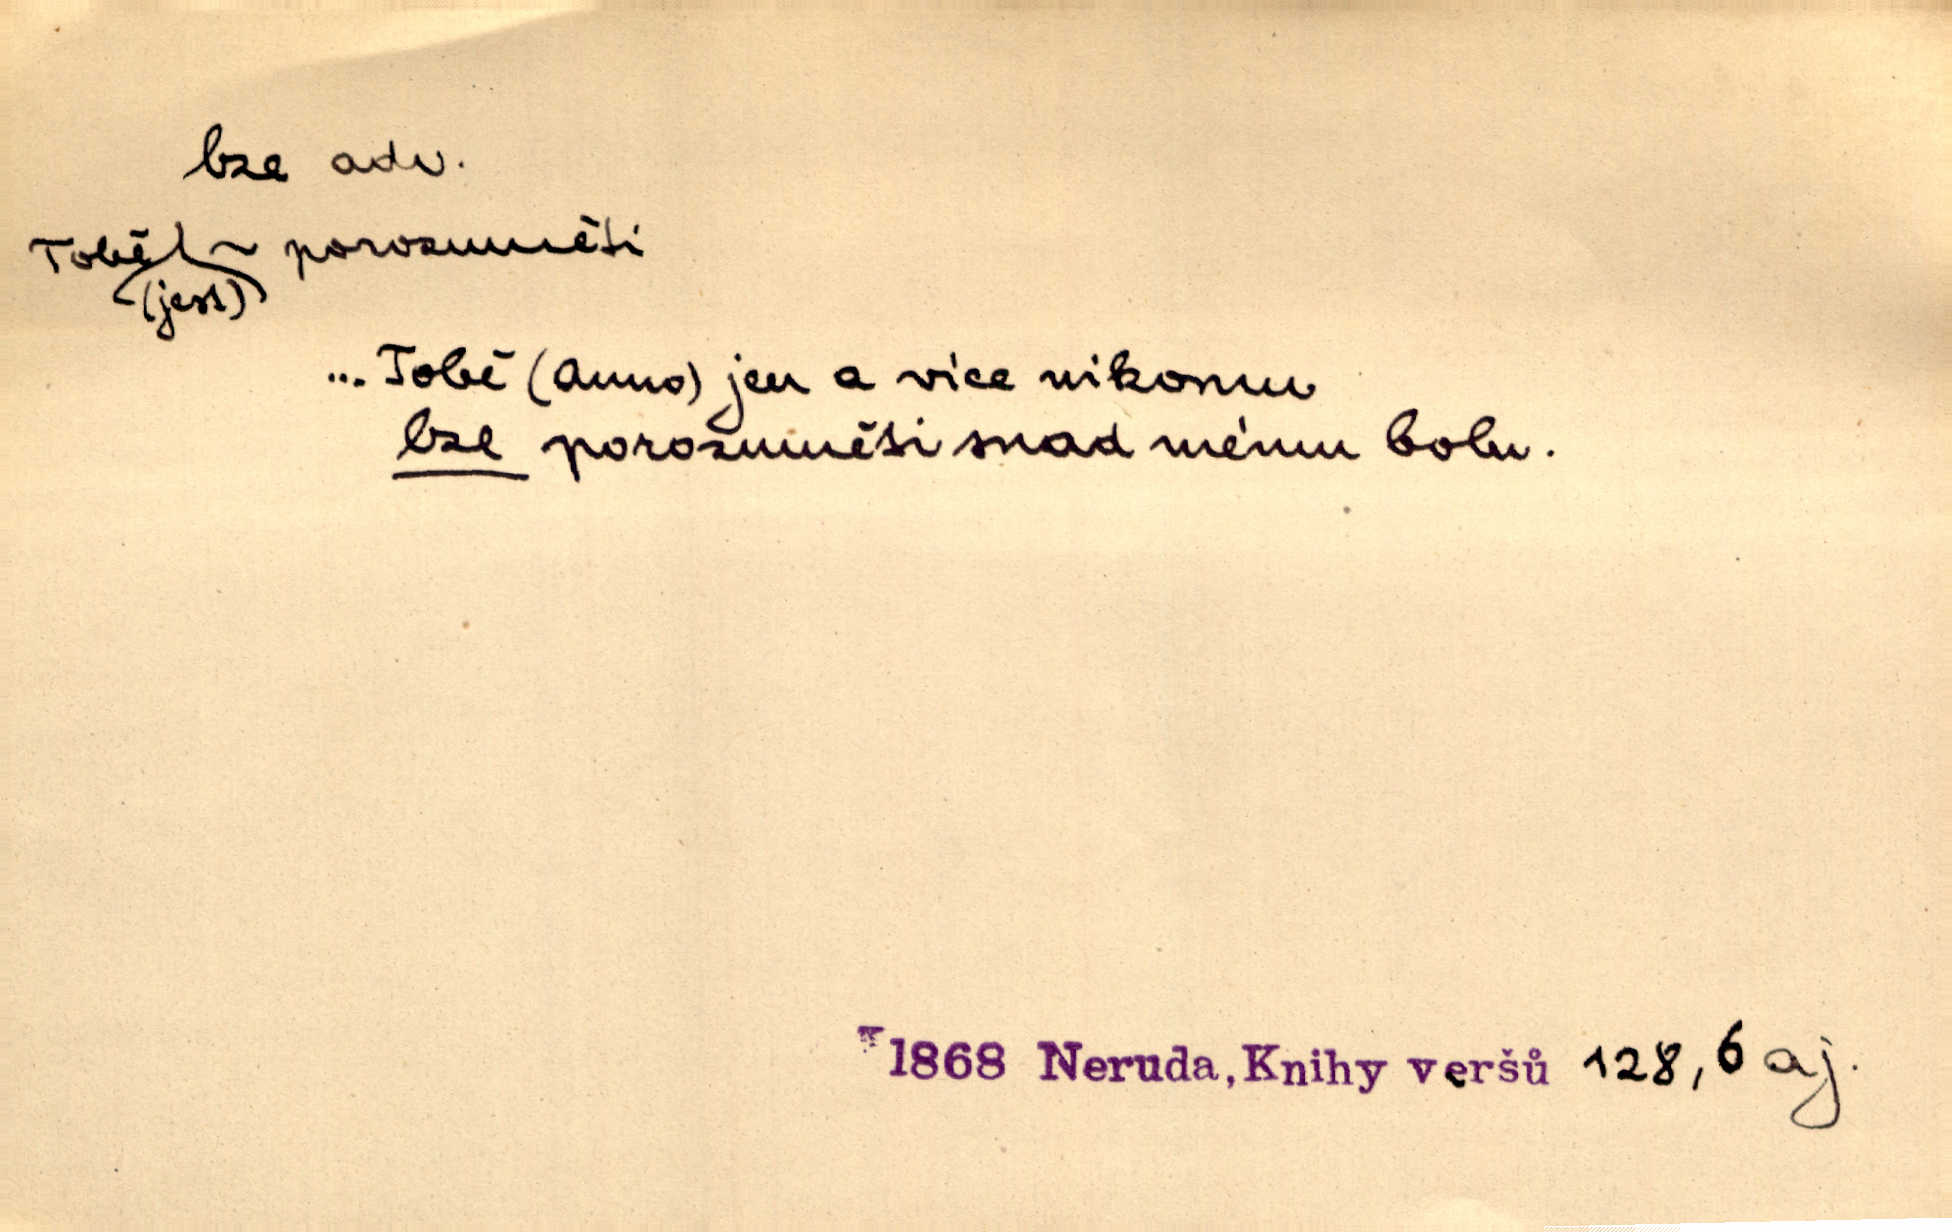 lze adv.
Tobě ~ porozuměti
(jest)
... Tobě (Anno) jen a více nikomu
lze porozuměti snad mému bolu.
1868 Neruda, Knihy veršů 128,6 aj.